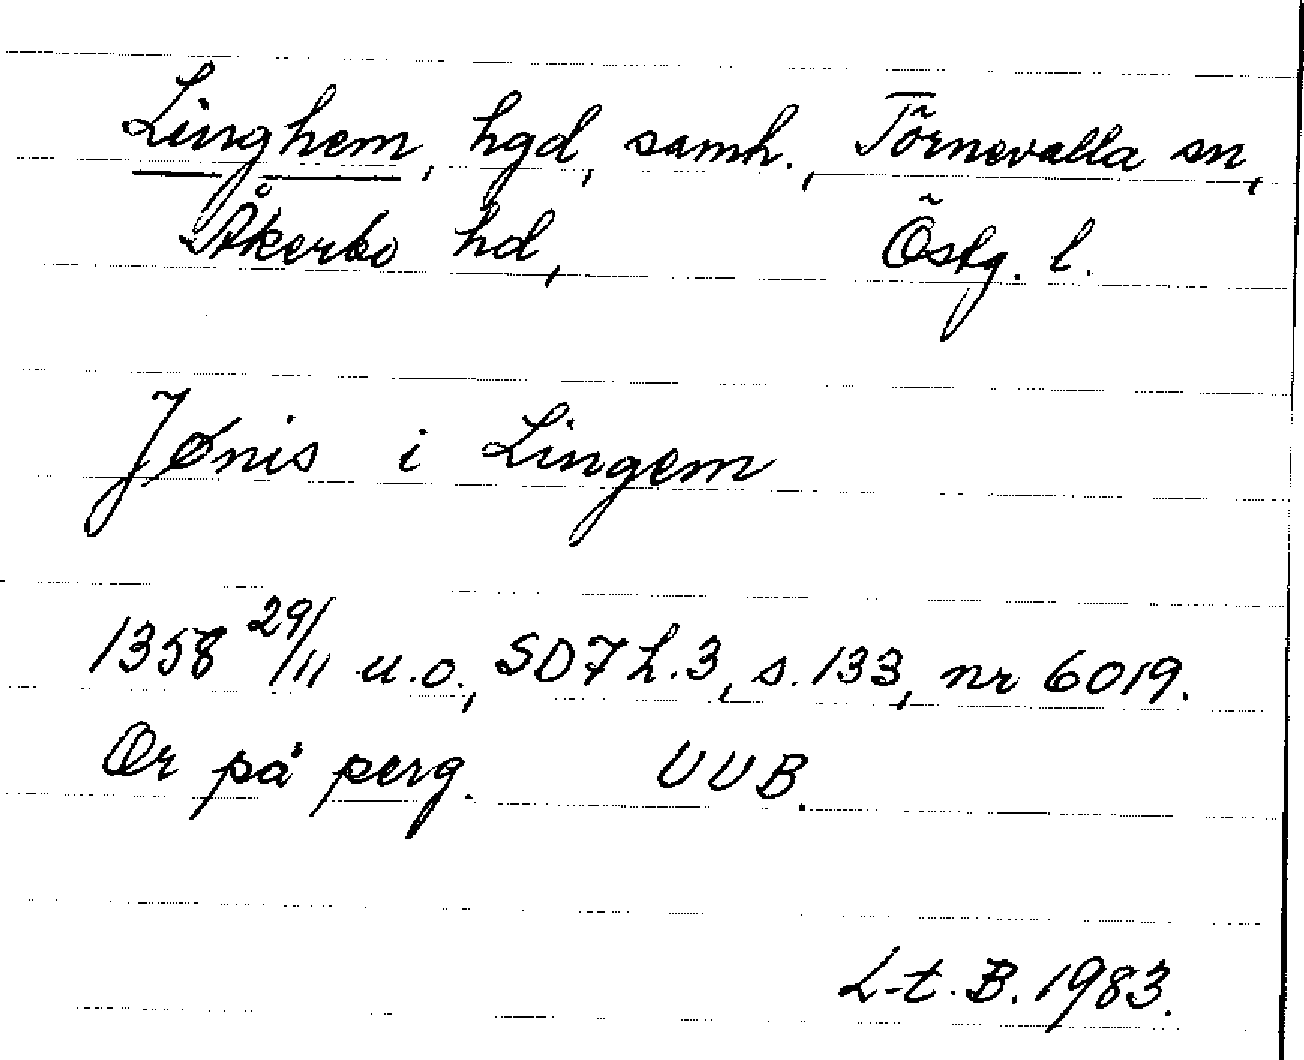 Linghem, hgd, samh., Törnevalla sn,
Åkerbo hd, Östg. l.
Jønis i Lingem
1358 29/11 u.o., SD7 h.3, s. 133, nr 6019.
Or på perg. UUB.
L-t. B. 1983.